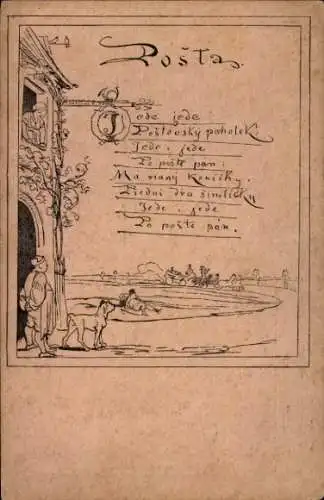 Pošta.
Jede jede
Poštovský panáček.
Jede, jede
Po poště pán.
Má vraný koníčky,
Přední dva
Jede, jede
Po poště pán.